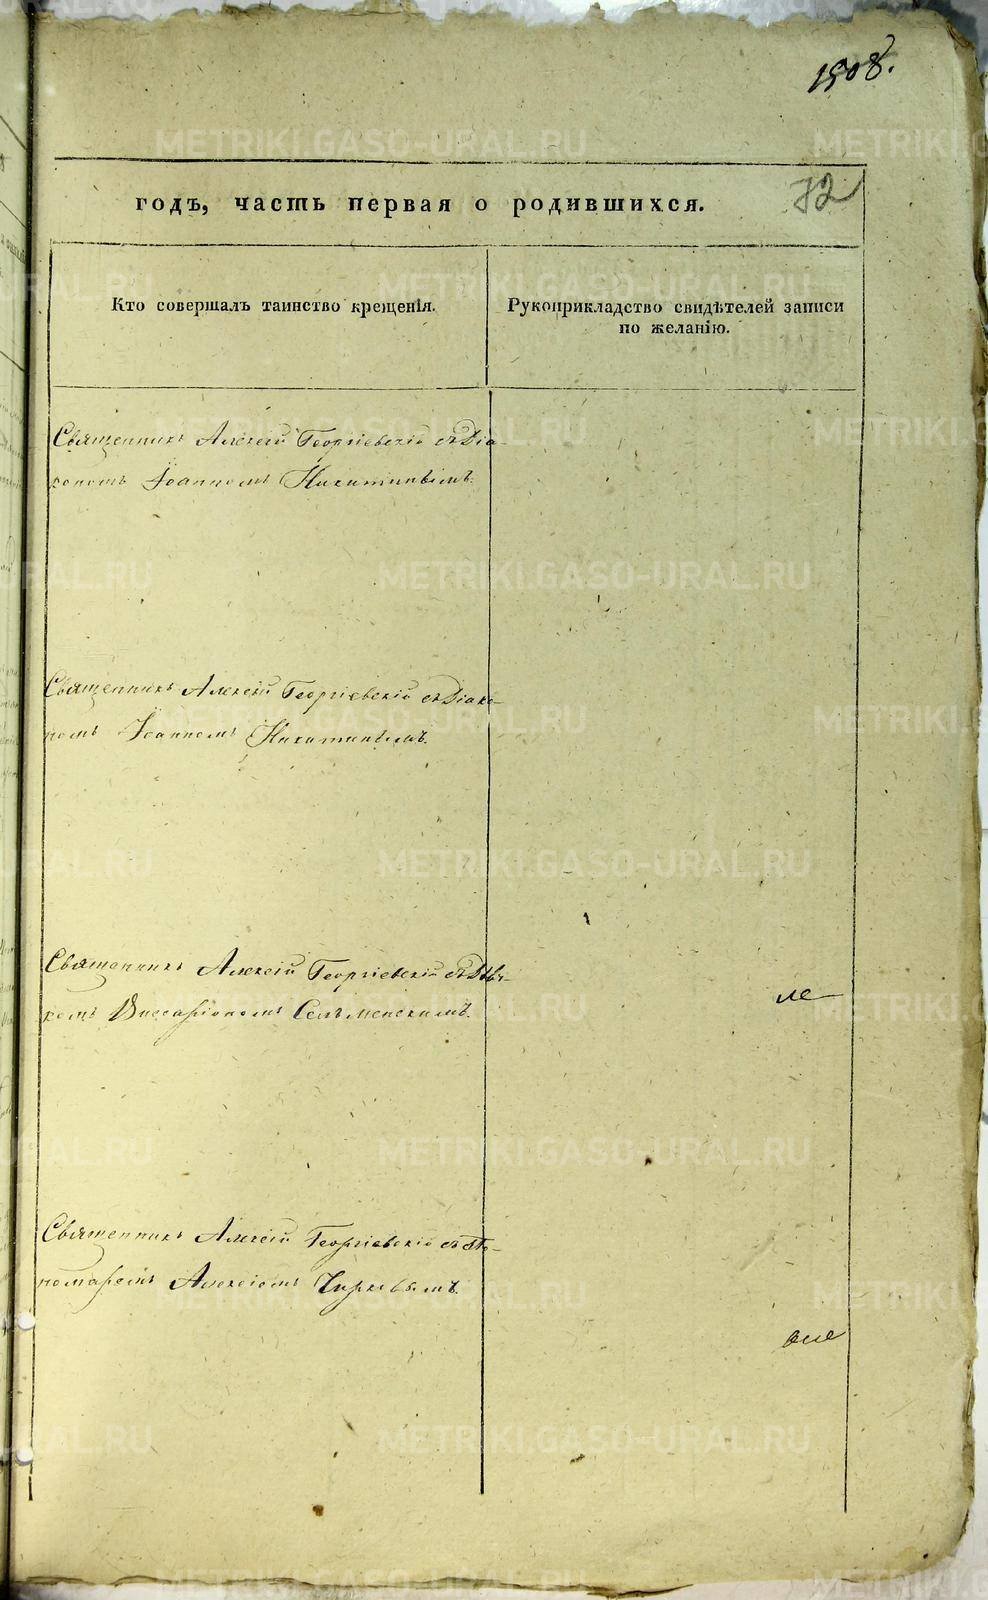 1508.
72
годъ, часть первая о родившихся.
Кто совершалъ таинство крещенія.
Рукоприкладство свидѣтелей записи
по желанію.
Священникъ Алексій Георгіевскій съ Діа-
кономъ Іоанномъ Никитинымъ.
Священникъ Алексій Георгіевскій съ Діако-
номъ Іоанномъ Никитинымъ.
Священникъ Алексій Георгіевскій съ Дья-
комъ Виссаріономъ
Священникъ Алексій Георгіевскій съ По-
номаремъ Алексіемъ Чирковымъ.
METRIKI.GASO-URAL.RU